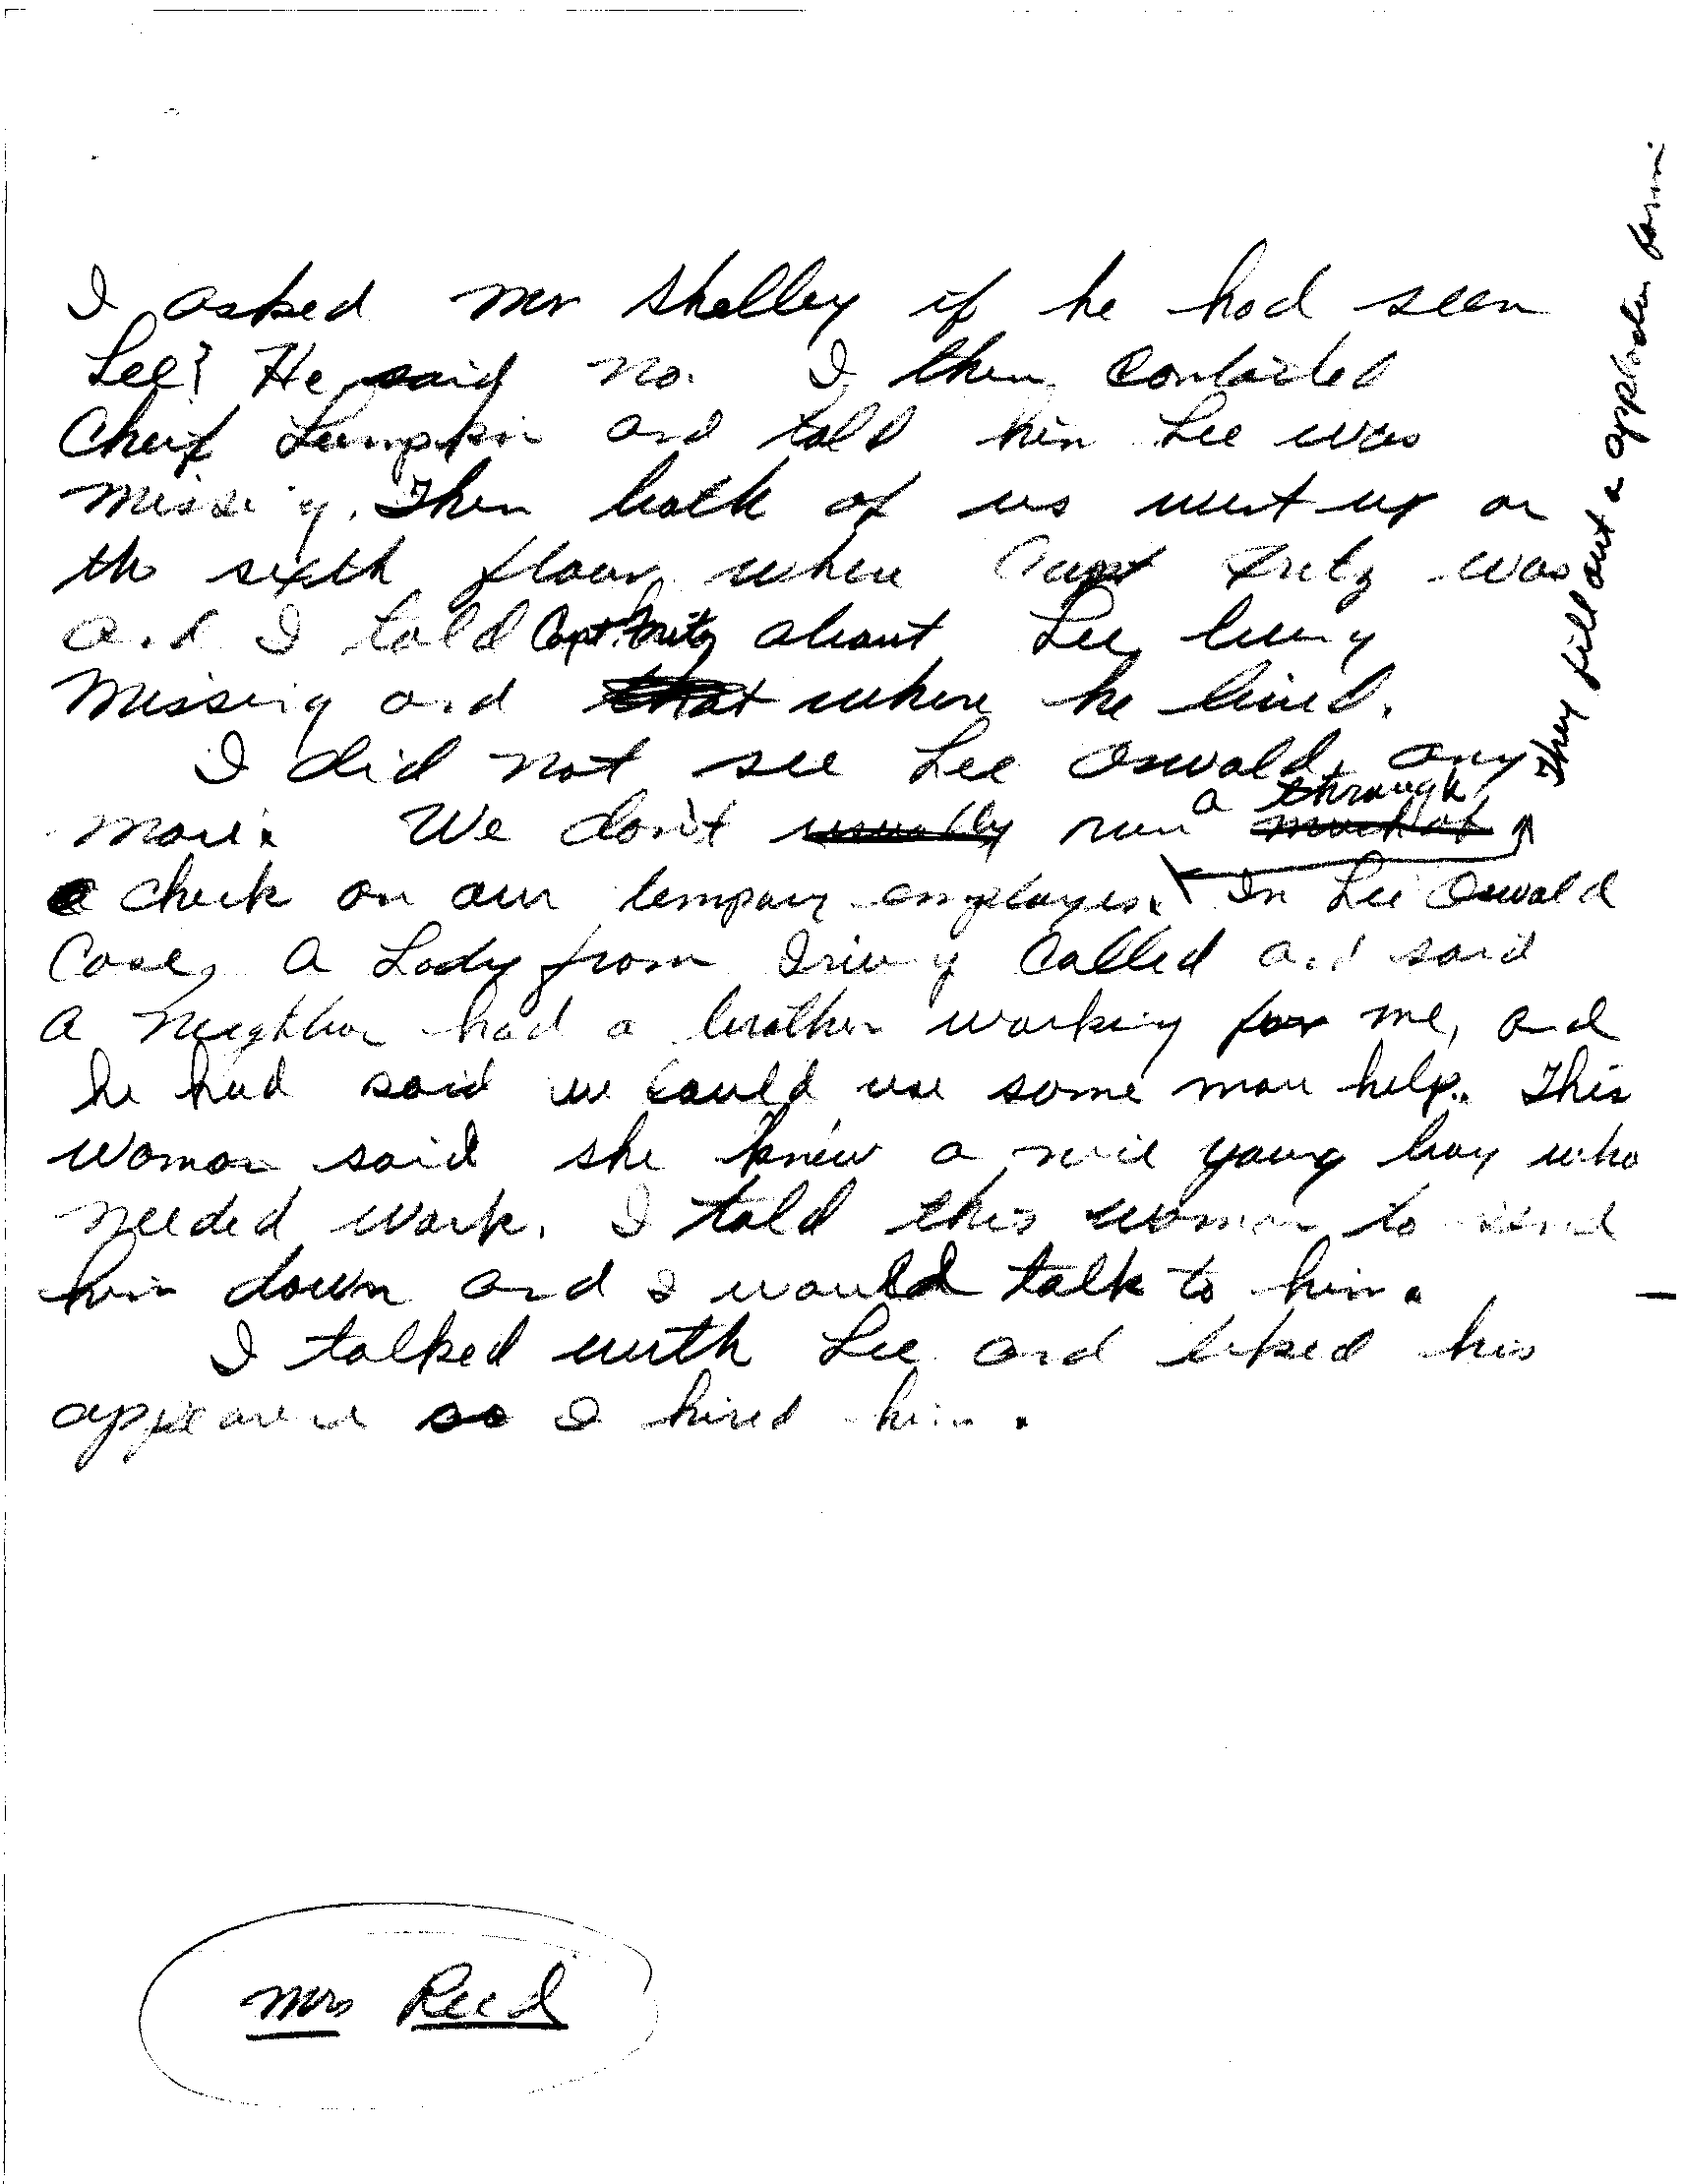 I asked Mr Shelley if he had seen
Lee? He said no. I then contacted
Cheif Lumpkin and told him Lee was
missing. Then both of us went up on
the sixth floor, where Capt Fritz was
and I told Capt. Fritz about Lee being
missing and that where he lived.
I did not see Lee Oswald any
more. We don't usually run a through much of
a check on our tempary employees. In Lee Oswald
Case, a Lady from Irving called and said
a neighbor had a brother working for me, and
he had said we could use some more help. This
woman said she knew a nice young boy who
needed work. I told this woman to send
him down and I would talk to him.
I talked with Lee and liked his
appearance so I hired him.
They fill out a application form.
Mrs Reed